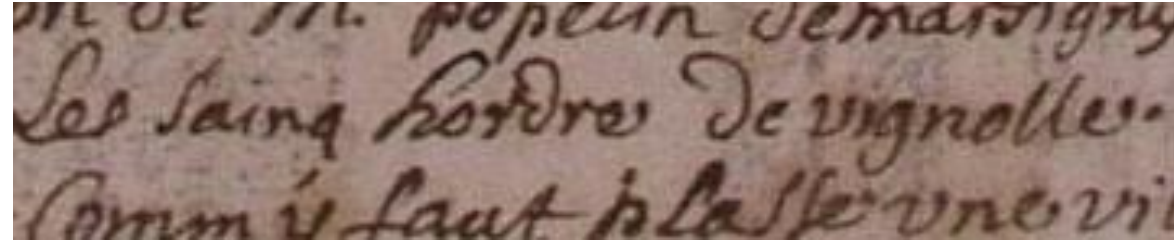 on de m. popelin demarsigny
Les sainq hordre de vignolle.
Comm y faut plasse vne vi